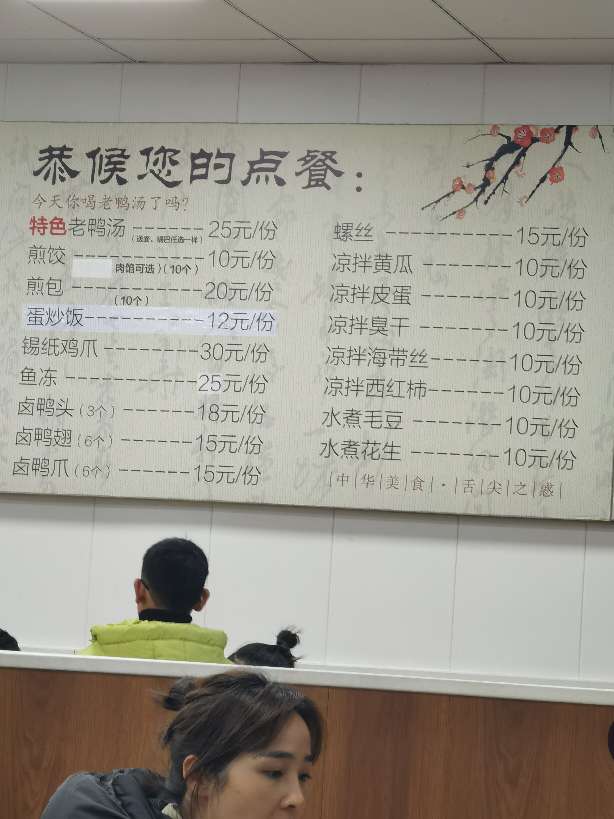 恭候您的点餐：
今天你喝老鸭汤了吗?
特色老鸭汤 ------- 25元/份
煎饺 ---------- 10元/份
肉馅可选)(10个)
煎包 ---------- 20元/份
(10个)
蛋炒饭---------- 12元/份
锡纸鸡爪 -------- 30元/份
鱼冻 ---------- 25元/份
卤鸭头(3个) ------ 18元/份
卤鸭翅(6个) ------ 15元/份
卤鸭爪(6个) ------ 15元/份
螺丝 ---------- 15元/份
凉拌黄瓜 ------- 10元/份
凉拌皮蛋 ------- 10元/份
凉拌臭干 ------- 10元/份
凉拌海带丝------ 10元/份
凉拌西红柿------ 10元/份
水煮毛豆 ------- 10元/份
水煮花生 ------- 10元/份
|中|华|美|食|·|舌|尖|之|惑|